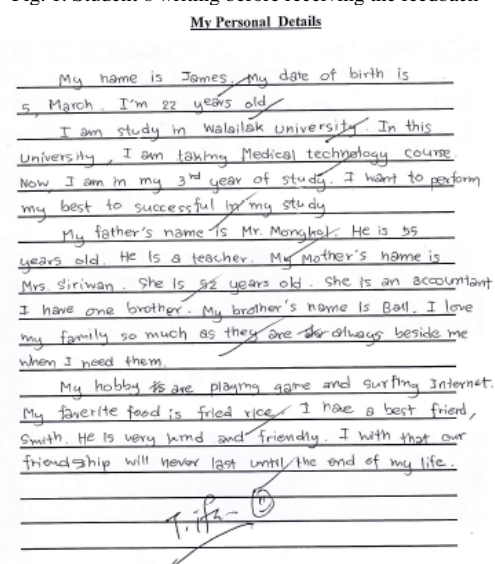 Fig. 1. Student's writing before receiving the feedback
My Personal Details
My name is James. My date of birth is
5, March. I'm 22 years old
I am study in Walailak University. In this
University, I am taking Medical technology course.
Now, I am in my 3rd year of study. I want to perform
my best to successful in my study
My father's name is Mr. Mongkol. He is 55
years old. He is a teacher. My Mother's name is
Mrs. Siriwan. She is 52 years old. She is an accountant
I have one brother. My brother's name is Ball. I love
my family so much as they are always beside me
when I need them.
My hobby are playing game and surfing Internet.
My faverite food is fried rice. I have a best friend,
Smith. He is very kind and friendly. I with that our
friendship will never last until the end of my life.